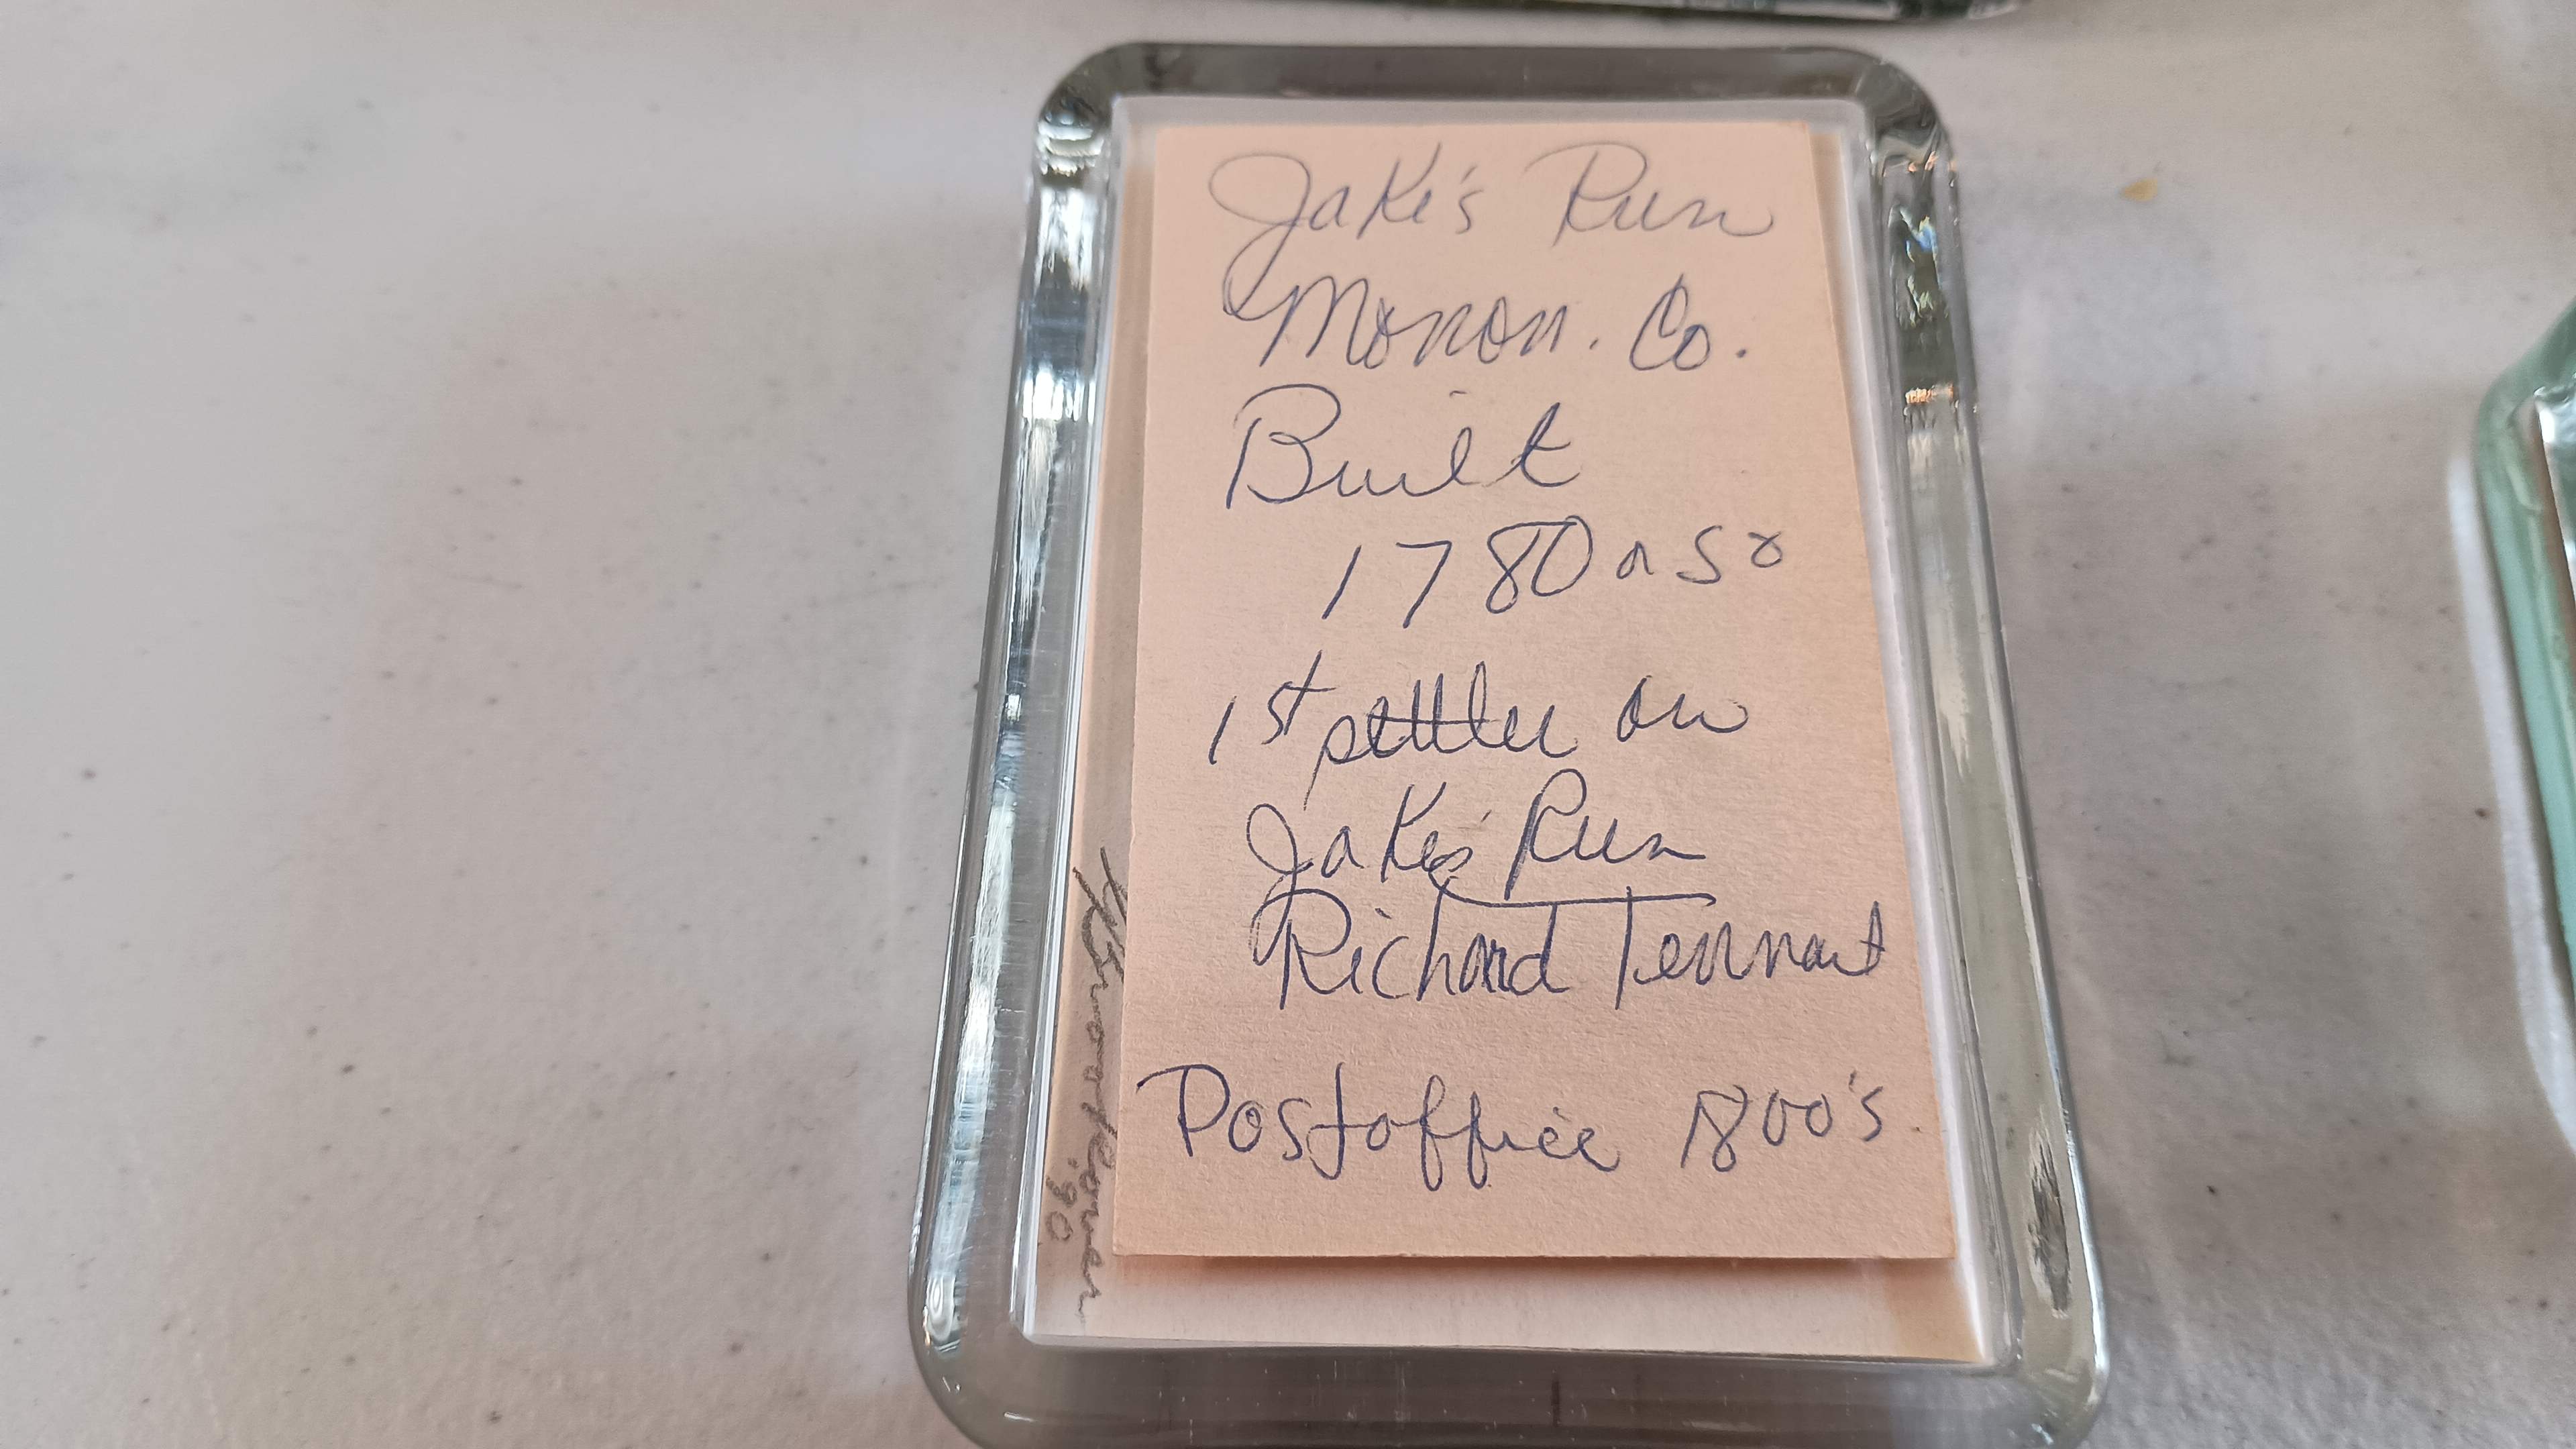 Jake's Run
Monon. Co.
Built
1780 or so
1st settler on
Jake's Run
Richard Tennant
Postoffice 1800's.
'90